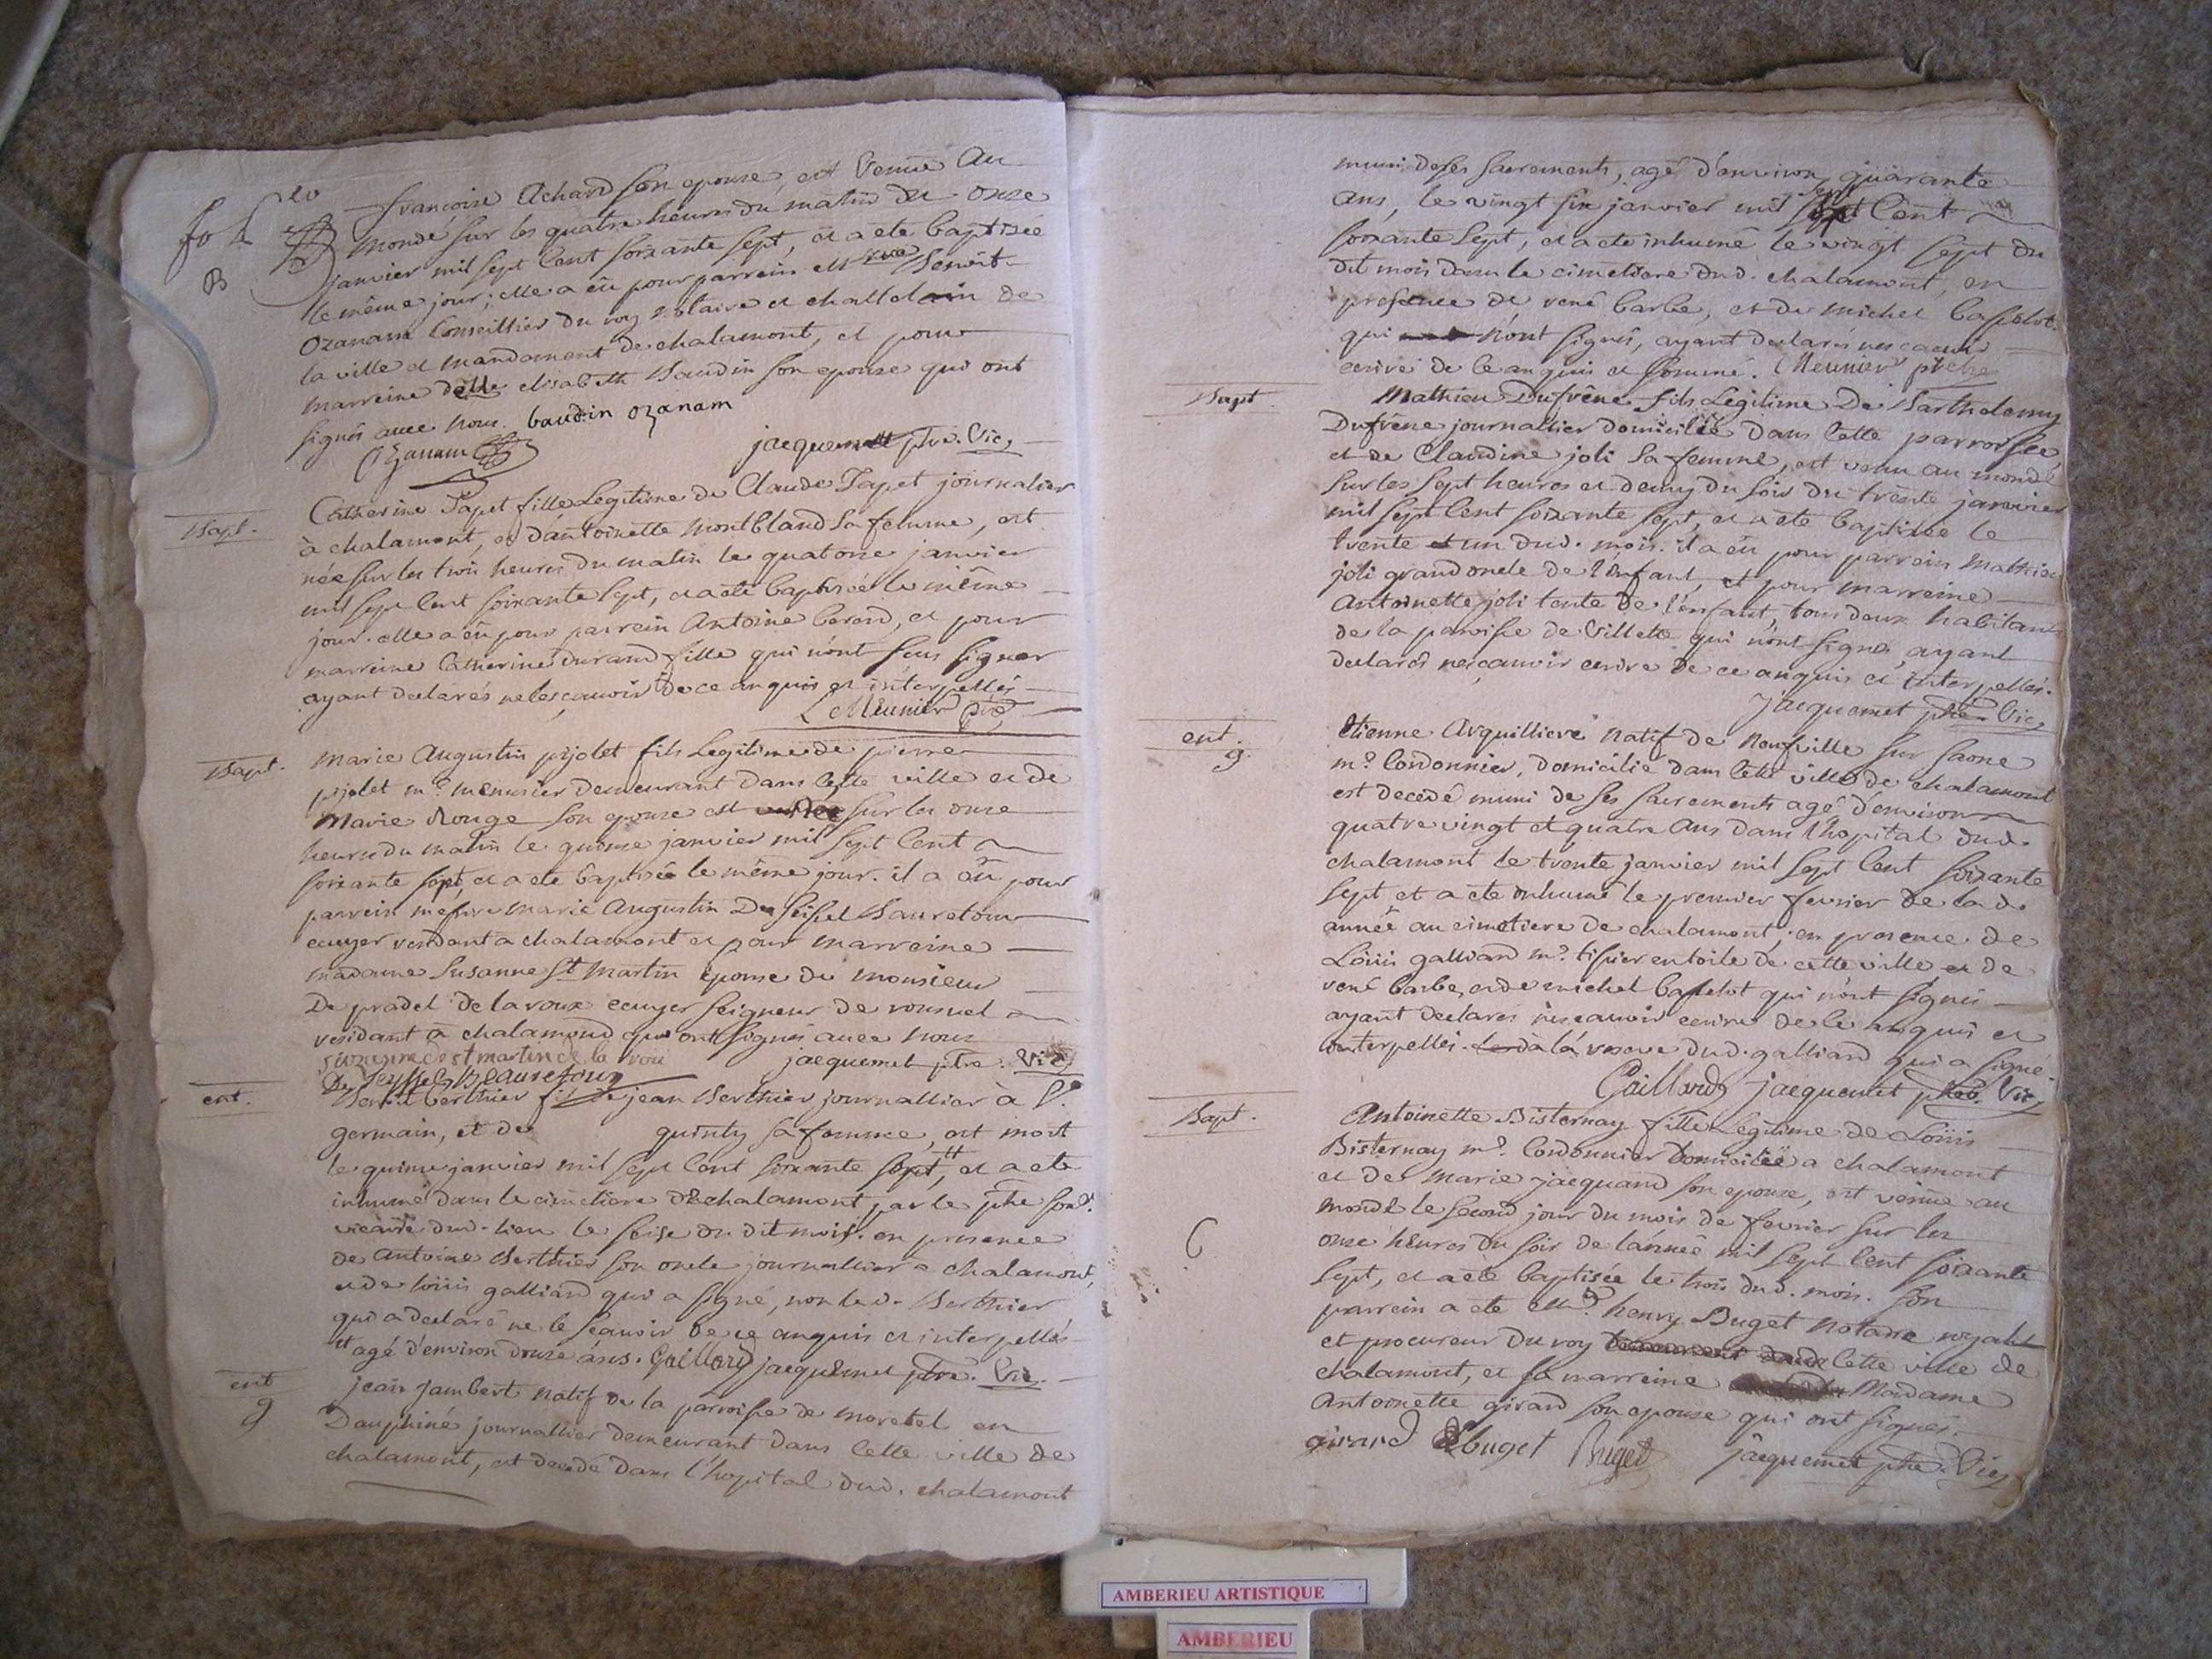 françoise Achard son epouse, est venuë Au
monde sur les quatre heures du matin du onze
janvier mil sept cent soixante sept, et a eté baptisée
le même jour; elle a eû pour parrein Benoit
Ozanam Conseiller du roy notaire et chattelain de
la ville et mandament de chalamont, et pour
marreine delle elisabeth Baudin son epouse qui ont
signés avec nous. baudin ozanam
Ozanam
jacquemet ptre. Vic.
Bapt.
Catherine Papet fille Legitime de Claude Papet journalier
à chalamont, et d'antoinette montbland sa femme, est
née sur les trois heures du matin le quatorze janvier
mil sept cent soixante sept, et a eté baptisée le même
jour. elle a eû pour parrein Antoine berard, et pour
marreine Catherine durand fille qui n'ont seus signer
ayant declarés ne le sçauoir de ce enquis et interpellés
L Meunier ptre
Bapt.
marie Augustin pijolet fils Legitime de pierre
pijolet me menusier demeurant dans cette ville et de
Marie Rouge son epouse est née sur les onze
heures du matin le quinze janvier mil sept cent
soixante sept, et a eté baptisée le même jour. il a eû pour
parrein messire marie Augustin De seissel Beauretour
ecuyer residant a chalamont et pour marreine
madame Susanne St Martin epouse de monsieur
De pradel de la roux ecuyer seigneur de ronsuel
residant a chalamond qui ont signés avec nous
suzanne de st martin de la roue
jacquemet ptre. Vic.
De Seyssel Beauretour
ent.
Benoit berthier fils de jean Berthier journallier à St
germain, et de quinty sa femme, est mort
le quinze janvier mil sept cent soixante sept, et a eté
inhumé dans le cimetiere de chalamont par le ptre sous.
vicaire dud. lieu le seise du dit mois. en presence
de antoine Berthier son oncle journallier a chalamont,
et de loüis galliand qui a signé, non led. Berthier
qui a declaré ne le sçauoir de ce enquis et interpellés
agé d'environ douze ans. Gaillard jacquemet ptre. Vic.
ent
9
jean jambert natif de la paroisse de moretel en
Dauphiné journallier demeurant dans cette ville de
chalamont, est decedé dans l'hopital dud. chalamont
muni de ses sacrements, agé d'environ quarante
ans, le vingt six janvier mil sept cent
soixante sept, et a eté inhumé le vingt sept du
dit mois dans le cimetiere dud. chalamont, en
presence de rené barbe, et de michel baselot
qui n'ont signés, ayant declarés ne sçauoir
ecrire de ce enquis et sommé. Meunier ptre
Bapt
Mathieu Dufrêne fils Legitime De Barthelemy
Dufrêne journallier domicilié dans cette parroisse
et de Claudine joli sa femme, est venu au monde
sur les sept heures et demy du soir du trente janvier
mil sept cent soixante sept, et a eté baptisée le
trente et un dud. mois. il a eû pour parrein mathieu
joli grand oncle de l'enfant, et pour marreine
antoinette joli tente de l'enfant, tous deux habitans
de la paroisse de Villette qui n'ont signés, ayant
declarés ne sçauoir ecrire de ce enquis et interpellés.
jacquemet ptre Vic.
ent.
9.
Etienne Arquilliere natif de neufville sur saone
me Cordonnier, domicilié dans cette ville de chalamont
est decedé muni de ses sacrements agé d'environ
quatre vingt et quatre ans dans l'hopital dud.
chalamont le trente janvier mil sept cent soixante
sept et a eté inhumé le premier fevrier de lad.
année au cimetiere de chalamont; en presence de
Loüis galliand me tissier en toile de cette ville et de
rené barbe, et de michel baselot qui n'ont signés
ayant declarés ne sçauoir ecrire de ce enquis et
interpellés. a la reserve dud. galliand qui a signé.
Gaillard jacquemet ptre. Vic.
Bapt.
Antoinette Bisternay fille Legitime de Loüis
Bisternay me Cordonnier domicilié a chalamont
et de marie jacquand son epouse, est venüe au
monde le second jour du mois de fevrier sur les
onze heures du soir de l'année mil sept cent soixante
sept, et a eté baptisée le trois dud. mois. son
parrein a eté henry Buget notaire royal
et procureur du roy cette ville de
chalamont, et sa marreine Madame
Antoinette girard son epouse qui ont signés.
girard buget Buget jacquemet ptre. Vic.
AMBERIEU ARTISTIQUE
AMBERIEU